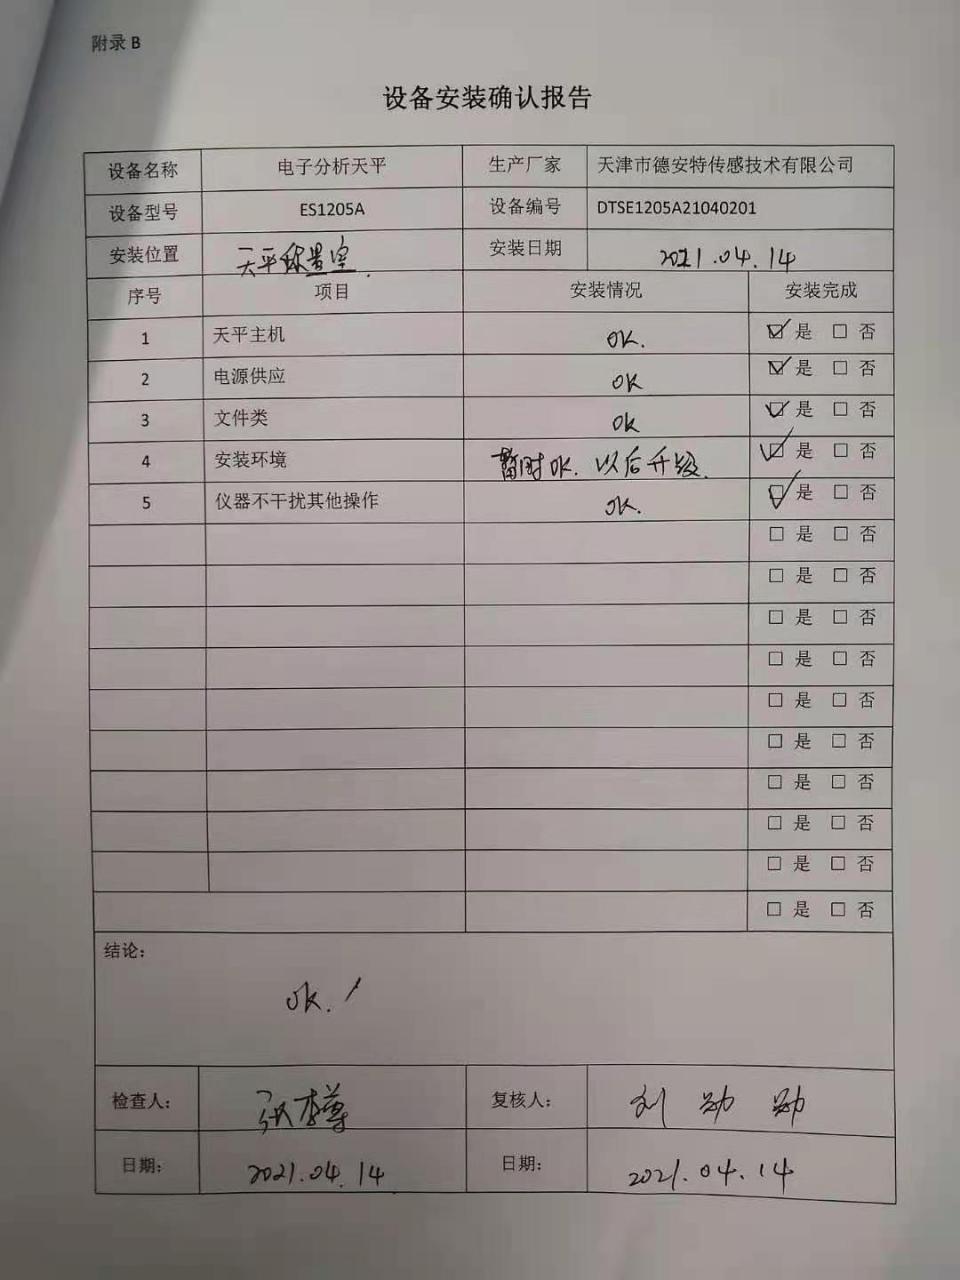 附录 B
设备安装确认报告
设备名称 电子分析天平 生产厂家 天津市德安特传感技术有限公司
设备型号 ES1205A 设备编号 DTSE1205A21040201
安装位置 天平 室 安装日期 2021.04.14
序号 项目 安装情况 安装完成
1 天平主机 OK. ☑ 是 □ 否
2 电源供应 OK ☑ 是 □ 否
3 文件类 OK ☑ 是 □ 否
4 安装环境 暂时OK. 以后升级. ☑ 是 □ 否
5 仪器不干扰其他操作 OK. ☑ 是 □ 否
□ 是 □ 否
□ 是 □ 否
□ 是 □ 否
□ 是 □ 否
□ 是 □ 否
□ 是 □ 否
□ 是 □ 否
□ 是 □ 否
□ 是 □ 否
□ 是 □ 否
结论：
OK. !
检查人： 复核人： 刘
日期： 2021.04.14 日期： 2021.04.14